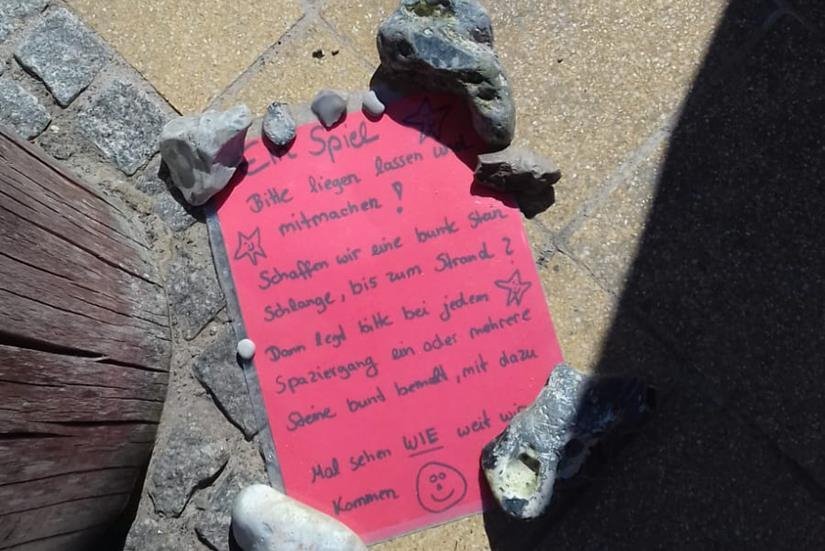 Ein Spiel
Bitte liegen lassen und
mitmachen!
Schaffen wir eine bunte Stein
Schlange, bis zum Strand?
Dann legt bitte bei jedem
Spaziergang ein oder mehrere
Steine bunt bemalt, mit dazu
Mal sehen WIE weit wir
Kommen